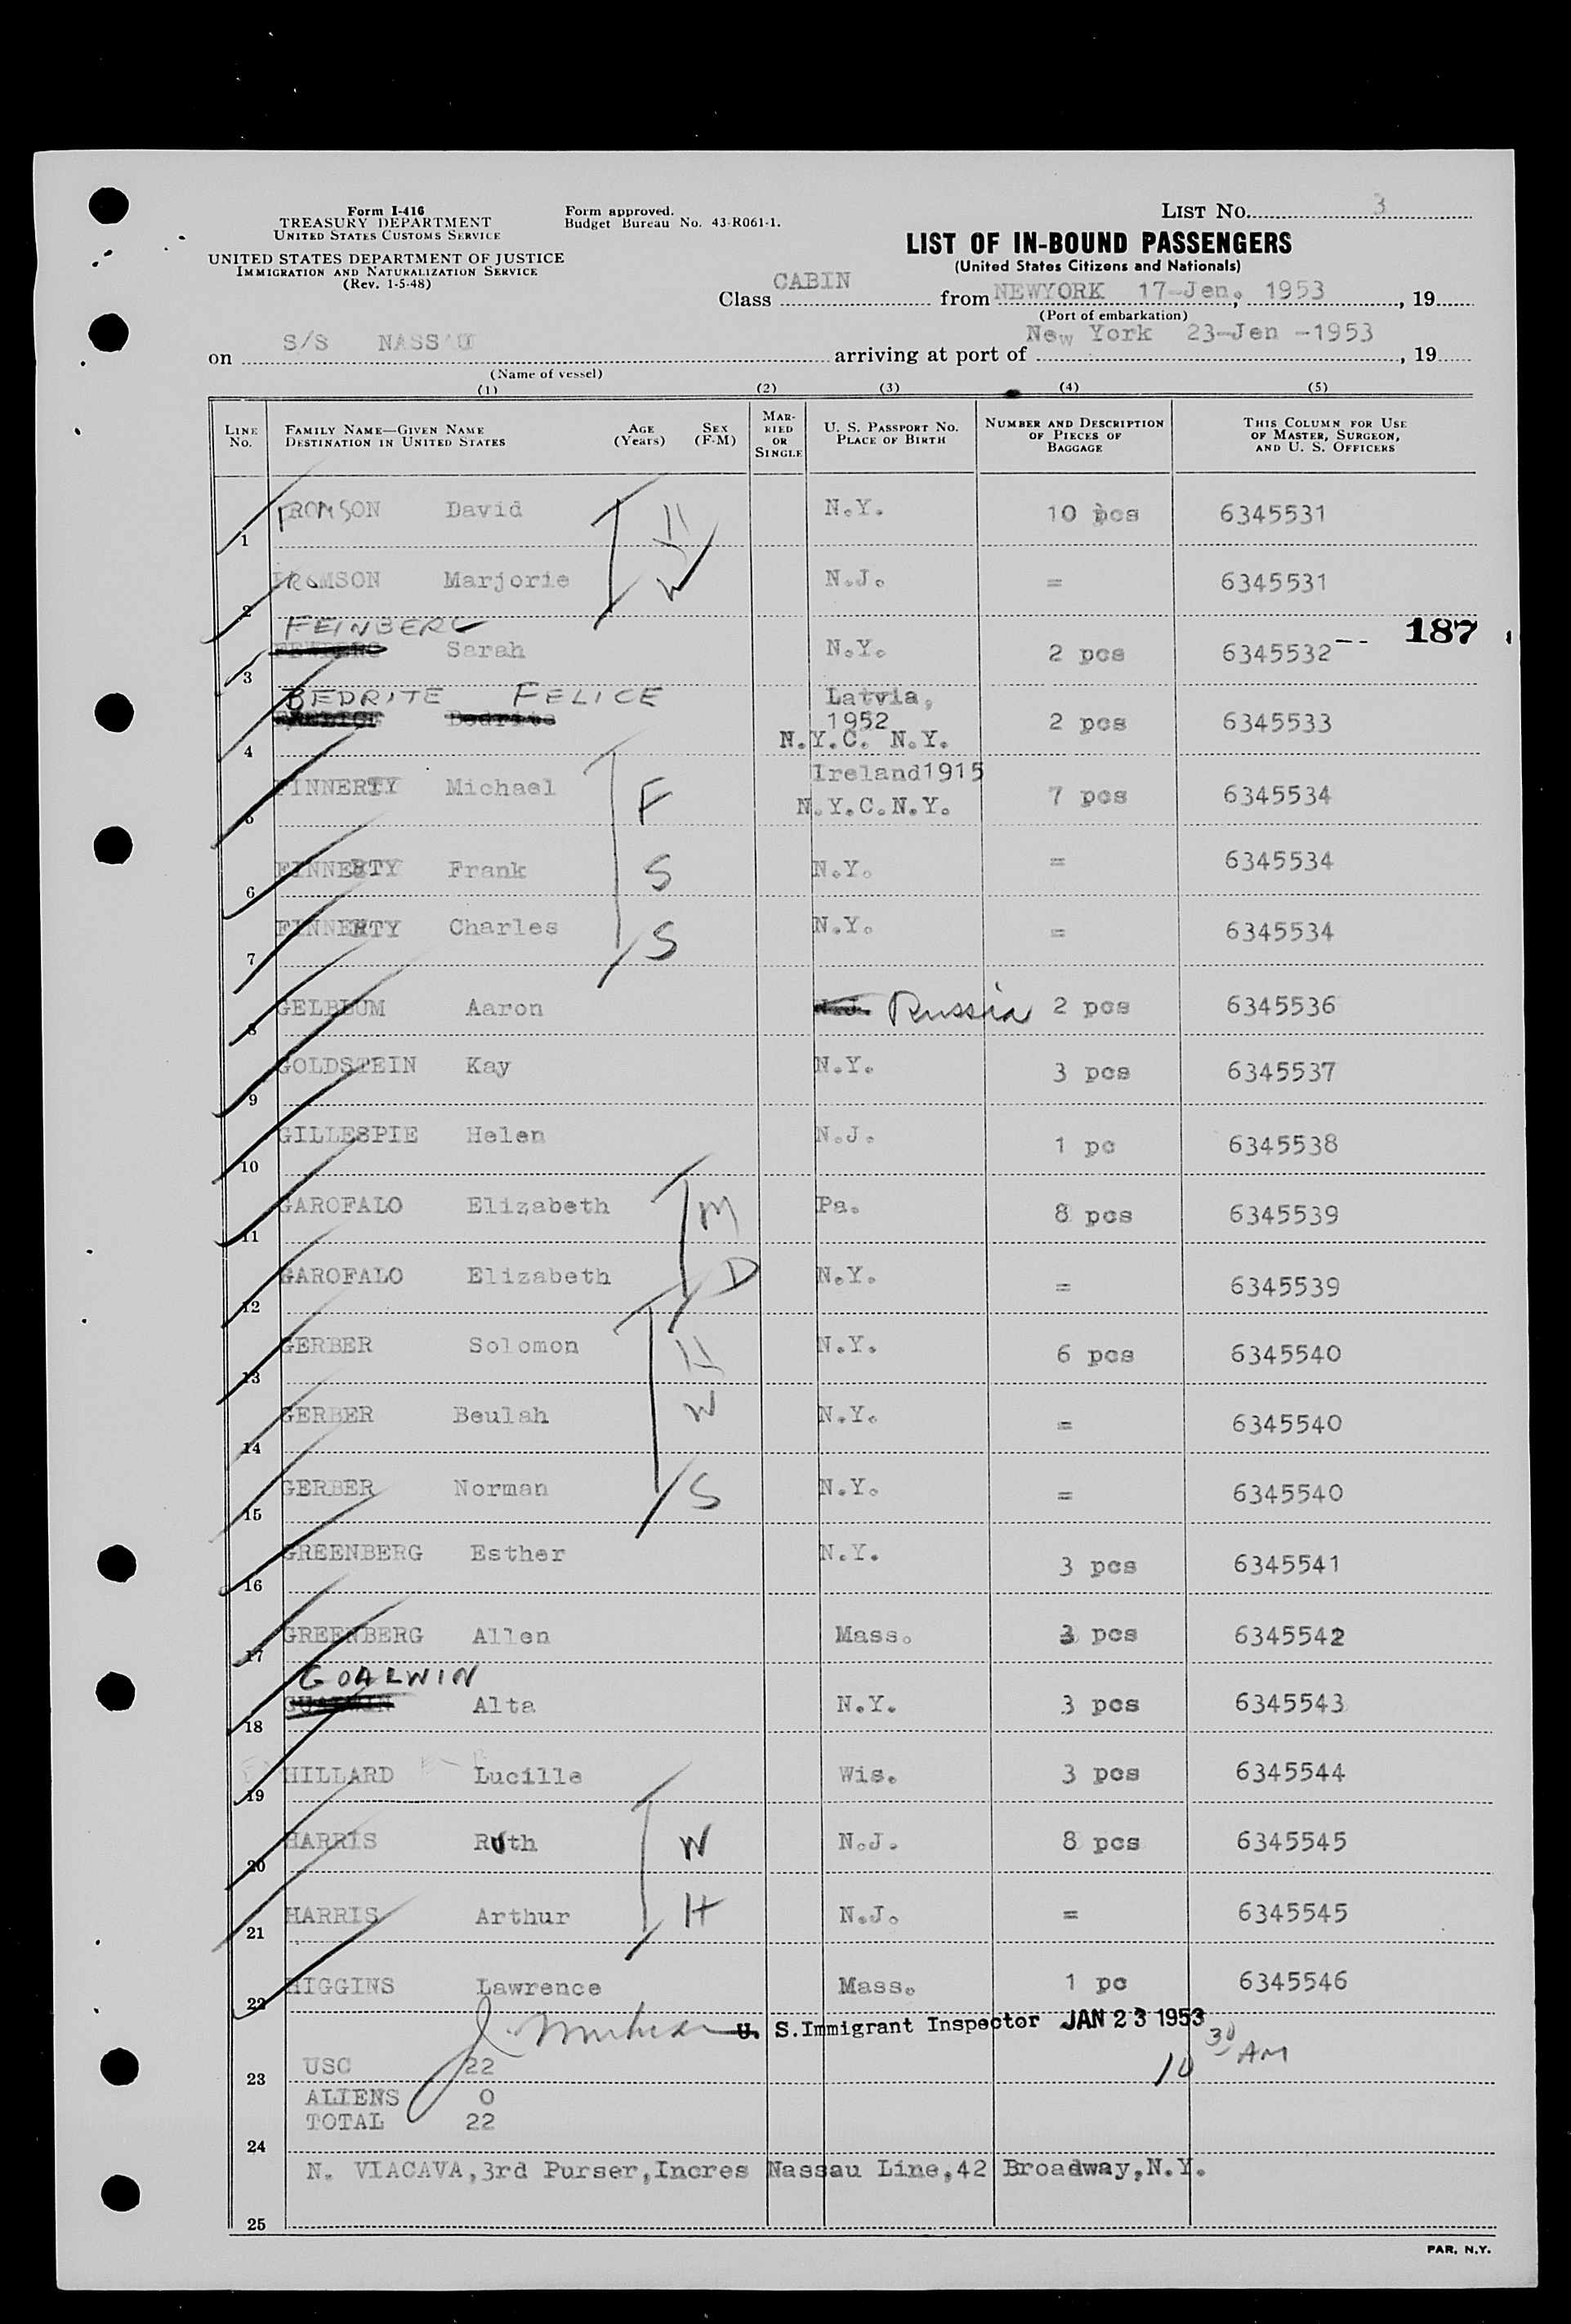 Form I-416
TREASURY DEPARTMENT
UNITED STATES CUSTOMS SERVICE
UNITED STATES DEPARTMENT OF JUSTICE
IMMIGRATION AND NATURALIZATION SERVICE
(Rev. 1-5-48)
Form approved.
Budget Bureau No. 43-R061-1.
LIST No. 3
LIST OF IN-BOUND PASSENGERS
(United States Citizens and Nationals)
Class CABIN from NEWYORK 17-Jen, 1953, 19
(Port of embarkation)
on S/S NASSAU arriving at port of New York 23-Jen -1953, 19
(Name of vessel)
(1) (2) (3) (4) (5)
LINE No. FAMILY NAME—GIVEN NAME DESTINATION IN UNITED STATES AGE (Years) SEX (F-M) MARRIED OR SINGLE U. S. PASSPORT No. PLACE OF BIRTH NUMBER AND DESCRIPTION OF PIECES OF BAGGAGE THIS COLUMN FOR USE OF MASTER, SURGEON, AND U. S. OFFICERS
1 ROMSON David H N.Y. 10 pcs 6345531
2 ROMSON Marjorie W N.J. = 6345531
FEINBERG
187
3 Sarah N.Y. 2 pcs 6345532--
BEDRITE FELICE Latvia,
4 Bedrite 1952 2 pcs 6345533
N.Y.C. N.Y.
Ireland1915
5 FINNERTY Michael F N.Y.C.N.Y. 7 pcs 6345534
6 FINNERTY Frank S N.Y. = 6345534
7 FINNERTY Charles S N.Y. = 6345534
8 GELBLUM Aaron N.J. Russia 2 pcs 6345536
9 GOLDSTEIN Kay N.Y. 3 pcs 6345537
10 GILLESPIE Helen N.J. 1 pc 6345538
11 GAROFALO Elizabeth M Pa. 8 pcs 6345539
12 GAROFALO Elizabeth D N.Y. = 6345539
13 GERBER Solomon H N.Y. 6 pcs 6345540
14 GERBER Beulah W N.Y. = 6345540
15 GERBER Norman S N.Y. = 6345540
16 GREENBERG Esther N.Y. 3 pcs 6345541
17 GREENBERG Allen Mass. 3 pcs 6345542
GOALWIN
18 Alta N.Y. 3 pcs 6345543
19 HILLARD Lucille Wis. 3 pcs 6345544
20 HARRIS Ruth W N.J. 8 pcs 6345545
21 HARRIS Arthur H N.J. = 6345545
22 HIGGINS Lawrence Mass. 1 pc 6345546
U. S. Immigrant Inspector JAN 23 1953
10 30 AM
23 USC 22
ALIENS 0
TOTAL 22
24
N. VIACAVA,3rd Purser,Incres Nassau Line,42 Broadway,N.Y.
25
PAR, N.Y.